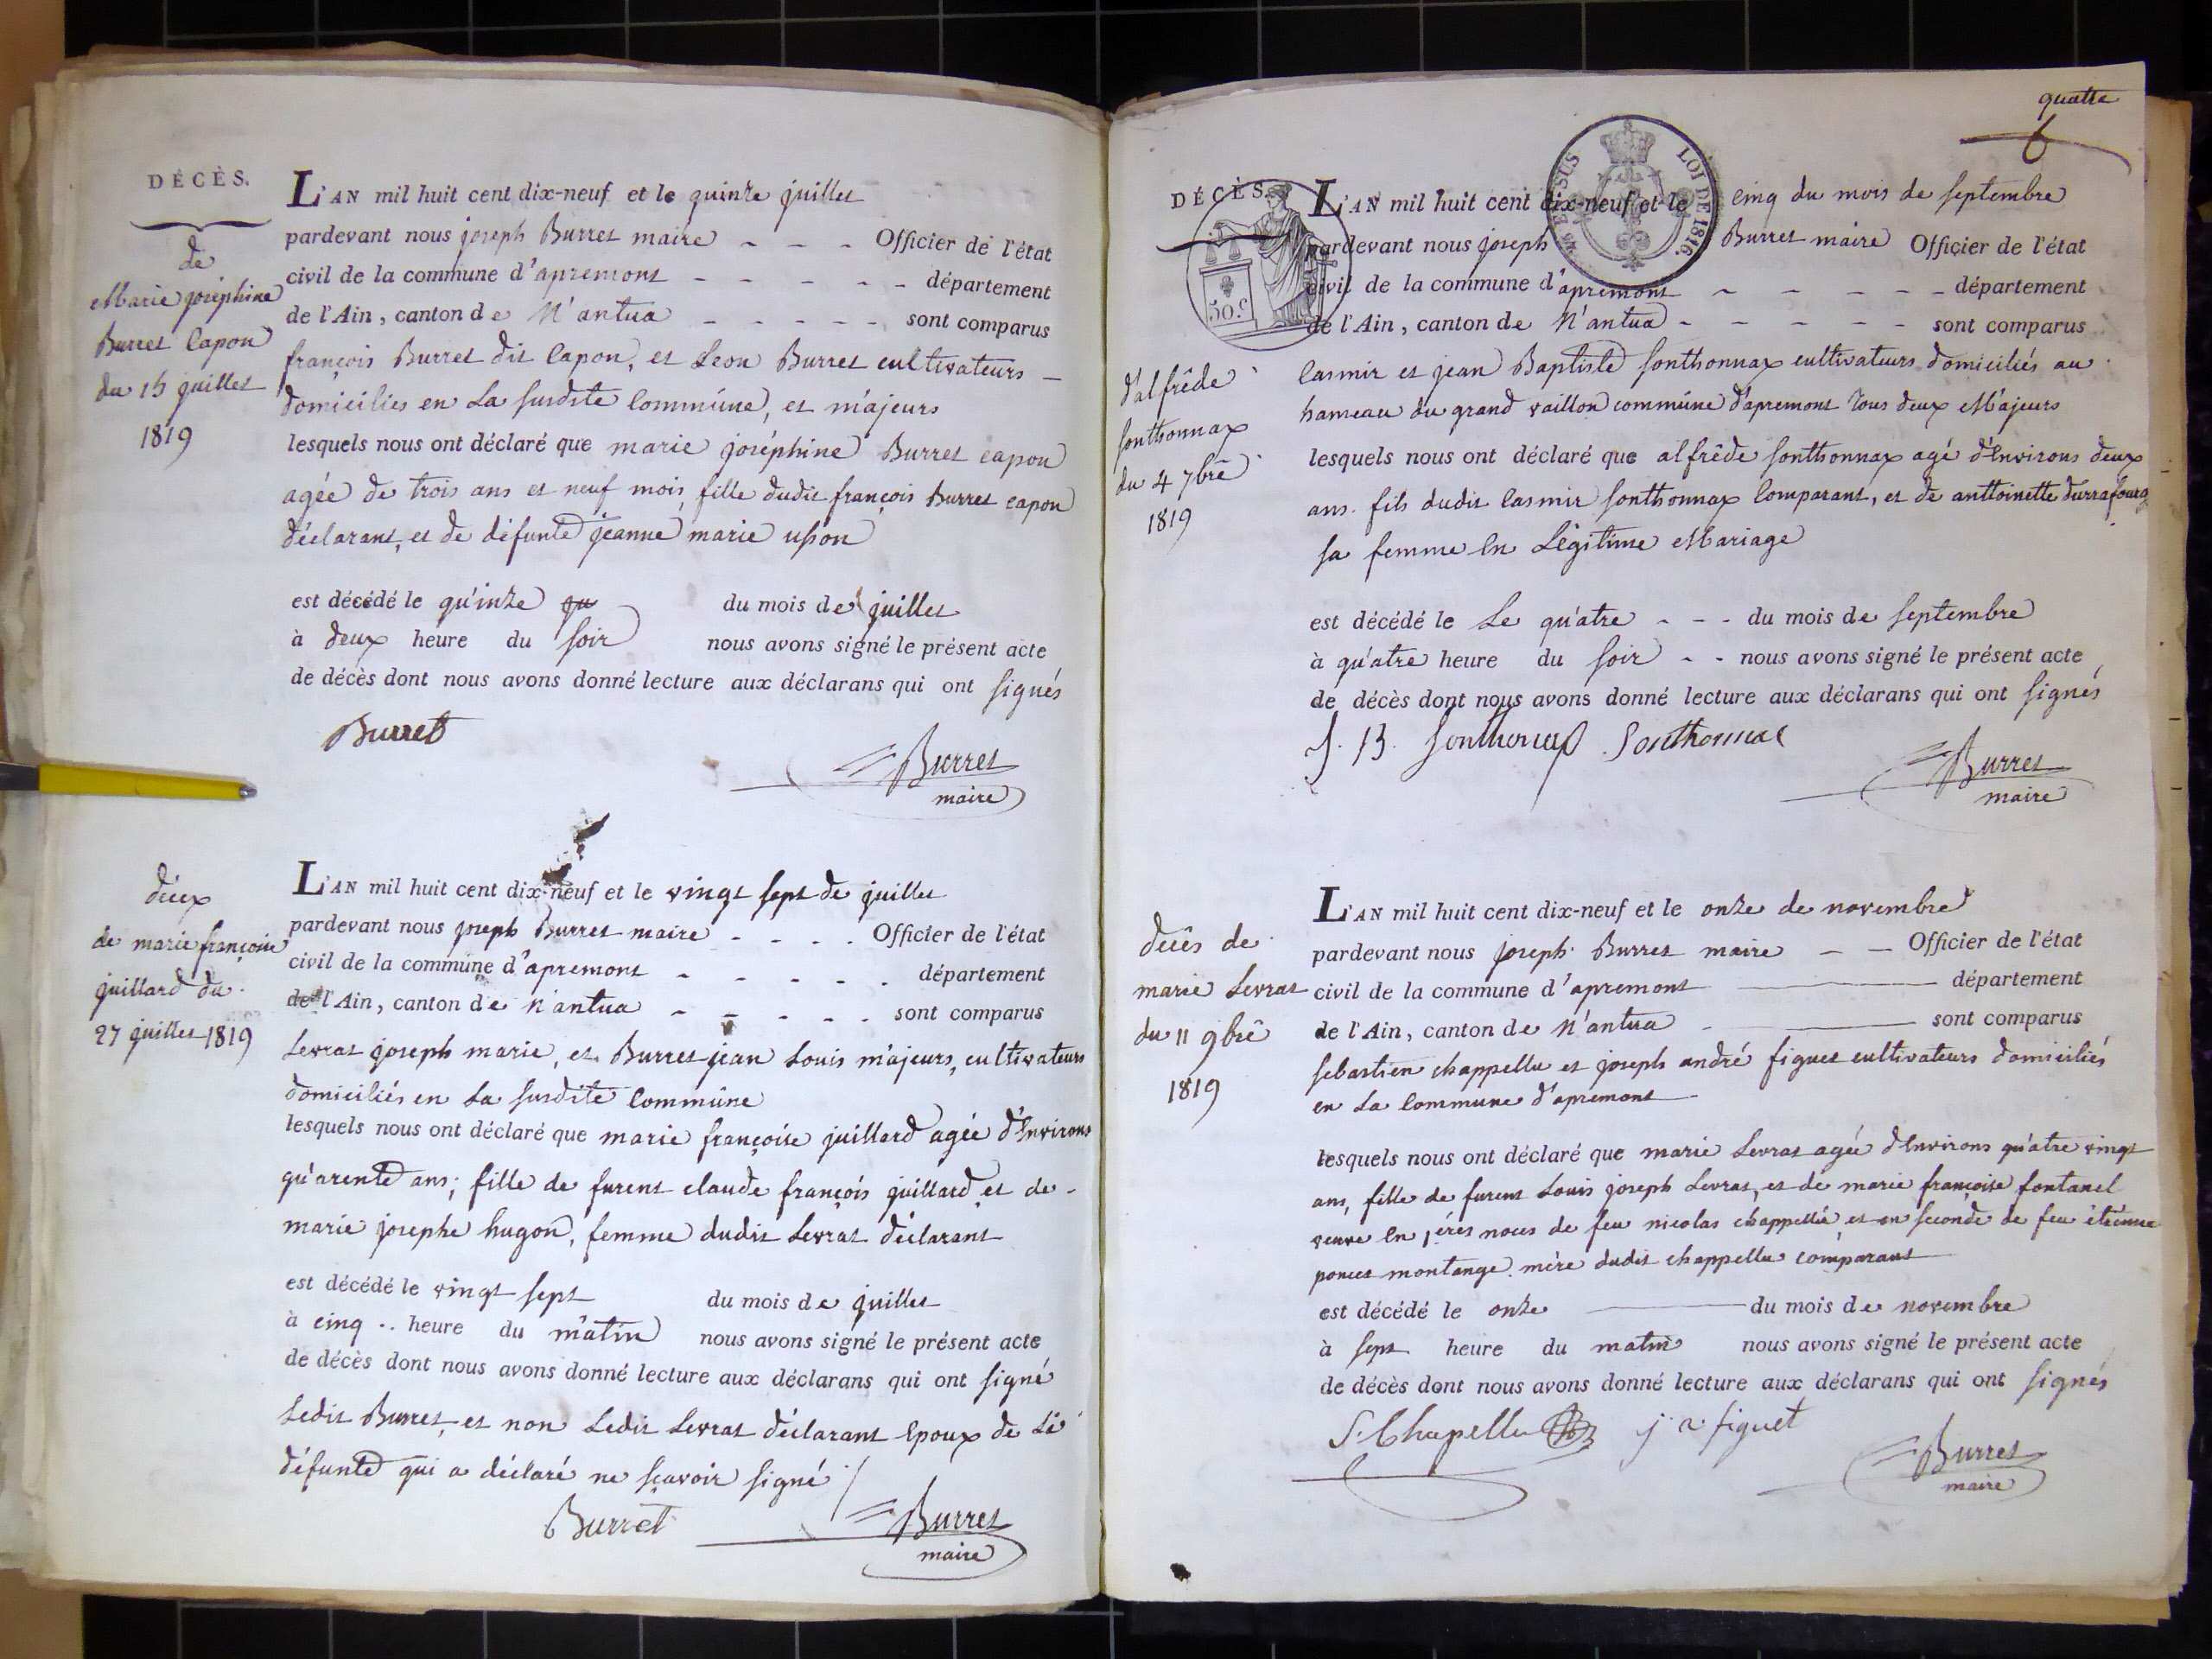 DÉCÈS.
de
Marie joséphine
Burret Capon
du 15 juillet
1819
L'AN mil huit cent dix-neuf et le quinze juillet
pardevant nous joseph Burret maire - - - Officier de l'état
civil de la commune d'apremont - - - - - département
de l'Ain, canton de N'antua - - - - - sont comparus
françois Burret dit Capon, et Leon Burret cultivateurs -
domiciliés en La susdite Commune, et majeurs
lesquels nous ont déclaré que marie joséphine Burret capon
agée de trois ans et neuf mois, fille dudit françois Burret capon
déclarant, et de défunte jeanne marie
est décédé le qu'inze qu du mois de juillet
à deux heure du soir nous avons signé le présent acte
de décès dont nous avons donné lecture aux déclarans qui ont signés
Burret
Burret
maire
décex
de marie françoise
juillard du
27 juillet 1819
L'AN mil huit cent dix-neuf et le vingt sept de juillet
pardevant nous joseph Burret maire - - - - Officier de l'état
civil de la commune d'apremont - - - - - département
de l'Ain, canton de n'antua - - - - - sont comparus
Levrat joseph marie, et Burret jean Louis majeurs, cultivateurs
domiciliés en La susdite Commune
lesquels nous ont déclaré que marie françoise juillard agée d'Environs
qu'arente ans; fille de furent claude françois juillard et de -
marie josephe hugon, femme dudit Levrat déclarant
est décédé le vingt sept du mois de juillet
à cinq .. heure du matin nous avons signé le présent acte
de décès dont nous avons donné lecture aux déclarans qui ont signé
Ledit Burret, et non Ledit Levrat déclarant Epoux de Lé
défunte qui a déclaré ne sçavoir signé
Burret
Burret
maire
quatre
6
DÉCÈS.
50.c
LOI DE 1816.
d'alfrêde
sonthonnax
du 4 7bre
1819
L'AN mil huit cent dix-neuf et le cinq du mois de septembre
pardevant nous joseph Burret maire Officier de l'état
civil de la commune d'apremont - - - - - département
de l'Ain, canton de N'antua - - - - - sont comparus
Casmir et jean Baptiste sonthonnax cultivateurs domiciliés au
hameau du grand vaillon commune d'apremont Tous deux Majeurs
lesquels nous ont déclaré que alfrêde sonthonnax agé d'Environs deux
ans. fils dudit Casmir sonthonnax Comparant, et de anttoinette durrafourg
sa femme En Légitime Mariage
est décédé le Le qu'atre - - - du mois de septembre
à qu'atre heure du soir - - nous avons signé le présent acte
de décès dont nous avons donné lecture aux déclarans qui ont signés
J. B. Sonthonax Sonthonnax
Burret
maire
decês de
marie Levrat
du 11 9bre
1819
L'AN mil huit cent dix-neuf et le onze de novembre
pardevant nous joseph Burret maire - - Officier de l'état
civil de la commune d'apremont département
de l'Ain, canton de N'antua sont comparus
sebastien chappellu et joseph andré figuet cultivateurs domiciliés
en La Commune d'apremont
lesquels nous ont déclaré que marie Levrat agée d'Environs qu'atre vingt
ans, fille de furent Louis joseph Levrat, et de marie françoise fontanel
veuve En 1ères noces de feu nicolas chappellu et en seconde de feu étienne
poncet montange. mère dudit chappellu comparant
est décédé le onze du mois de novembre
à sept heure du matin nous avons signé le présent acte
de décès dont nous avons donné lecture aux déclarans qui ont signés
S. Chapellu j a figuet
Burret
maire